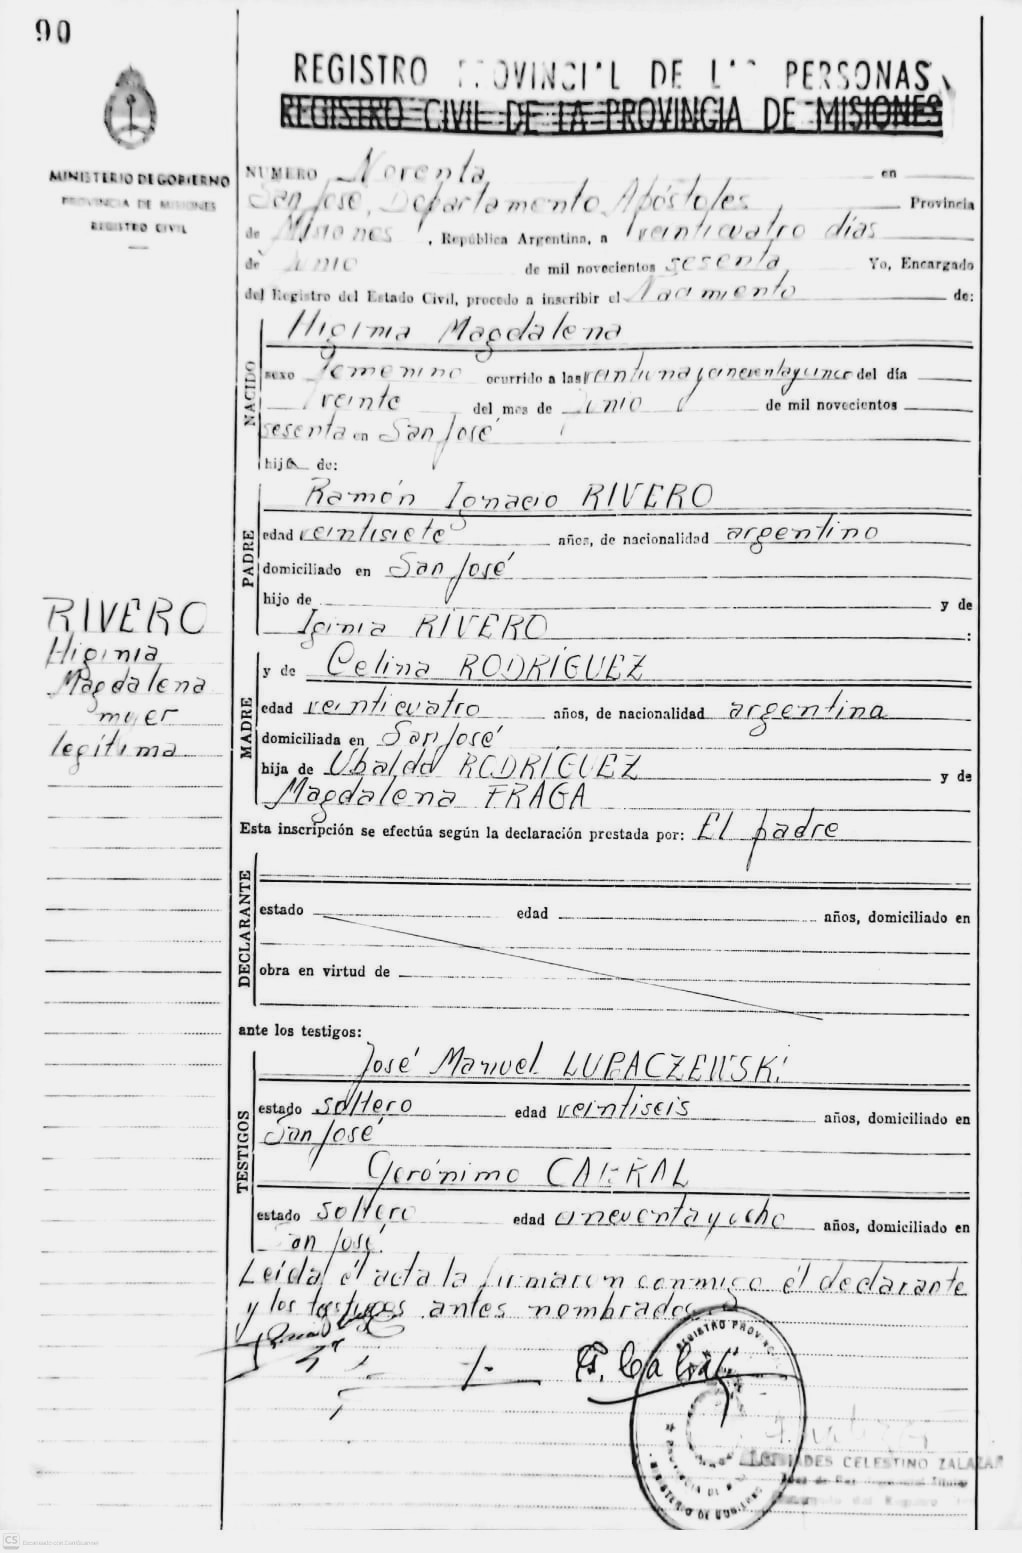 90
REGISTRO PROVINCIAL DE LAS PERSONAS
REGISTRO CIVIL DE LA PROVINCIA DE MISIONES
MINISTERIO DE GOBIERNO
PROVINCIA DE MISIONES
REGISTRO CIVIL
NUMERO Noventa en
San José, Departamento Apóstoles, Provincia
de Misiones, República Argentina, a veinticuatro días
de Junio de mil novecientos sesenta Yo, Encargado
del Registro del Estado Civil, procedo a inscribir el Nacimiento de:
NACIDO
Higinia Magdalena
sexo femenino ocurrido a las veintiuna y cincuenta y cinco del día
veinte del mes de Junio de mil novecientos
sesenta en San José
hija de:
PADRE
Ramón Ignacio RIVERO
edad veintisiete años, de nacionalidad argentino
domiciliado en San José
hijo de y de
Iginia RIVERO :
RIVERO
Higinia
Magdalena
mujer
legítima
MADRE
y de Celina RODRÍGUEZ
edad veinticuatro años, de nacionalidad argentina
domiciliada en San José
hija de Ubaldo RODRÍGUEZ y de
Magdalena FRAGA
Esta inscripción se efectúa según la declaración prestada por: El padre
DECLARANTE
estado edad años, domiciliado en
obra en virtud de
ante los testigos:
TESTIGOS
José Manuel LUPACZEWSKI
estado soltero edad veintiseis años, domiciliado en
San José
Gerónimo CABRAL
estado soltero edad cincuenta y ocho años, domiciliado en
San José.
Leída el acta la firmaron conmigo el declarante
y los testigos antes nombrados
G. Cabral
REGISTRO PROVINCIAL
PROVINCIA DE
MINISTERIO DE GOBIERNO
CELESTINO ZALAZAR
Juez de Paz Titular
Encargado del Registro
CS Escaneado con CamScanner